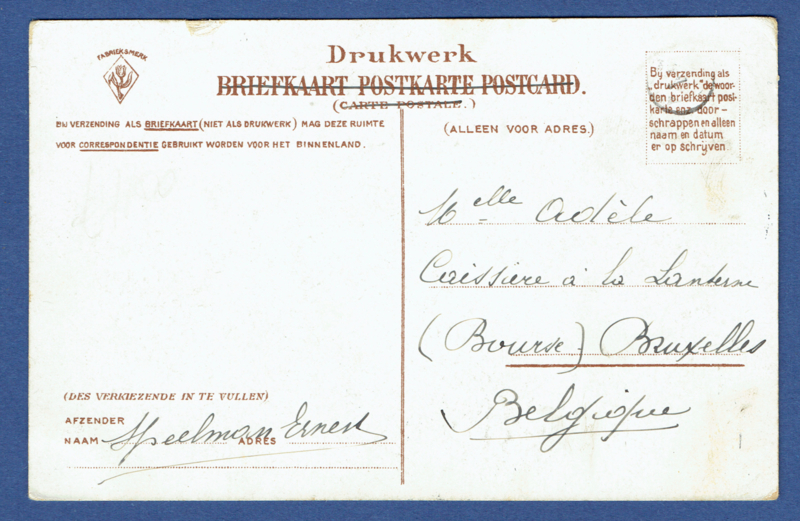 FABRIEKSMERK
Drukwerk
BRIEFKAART POSTKARTE POSTCARD.
(CARTE POSTALE.)
BIJ VERZENDING ALS BRIEFKAART (NIET ALS DRUKWERK) MAG DEZE RUIMTE
VOOR CORRESPONDENTIE GEBRUIKT WORDEN VOOR HET BINNENLAND.
(ALLEEN VOOR ADRES.)
By verzending als
„drukwerk" de woor-
den briefkaart post-
karte enz. door-
schrappen en alleen
naam en datum
er op schryven
Melle Adèle
Caissière à la Lanterne
(Bourse) Bruxelles
Belgique
(DES VERKIEZENDE IN TE VULLEN)
AFZENDER
NAAM Speelman ADRES Ernest